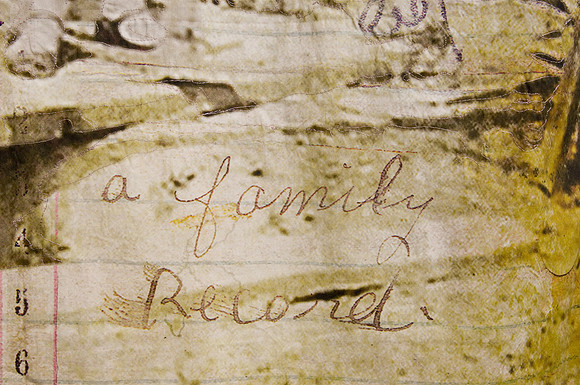 a family
Record.
4
5
6